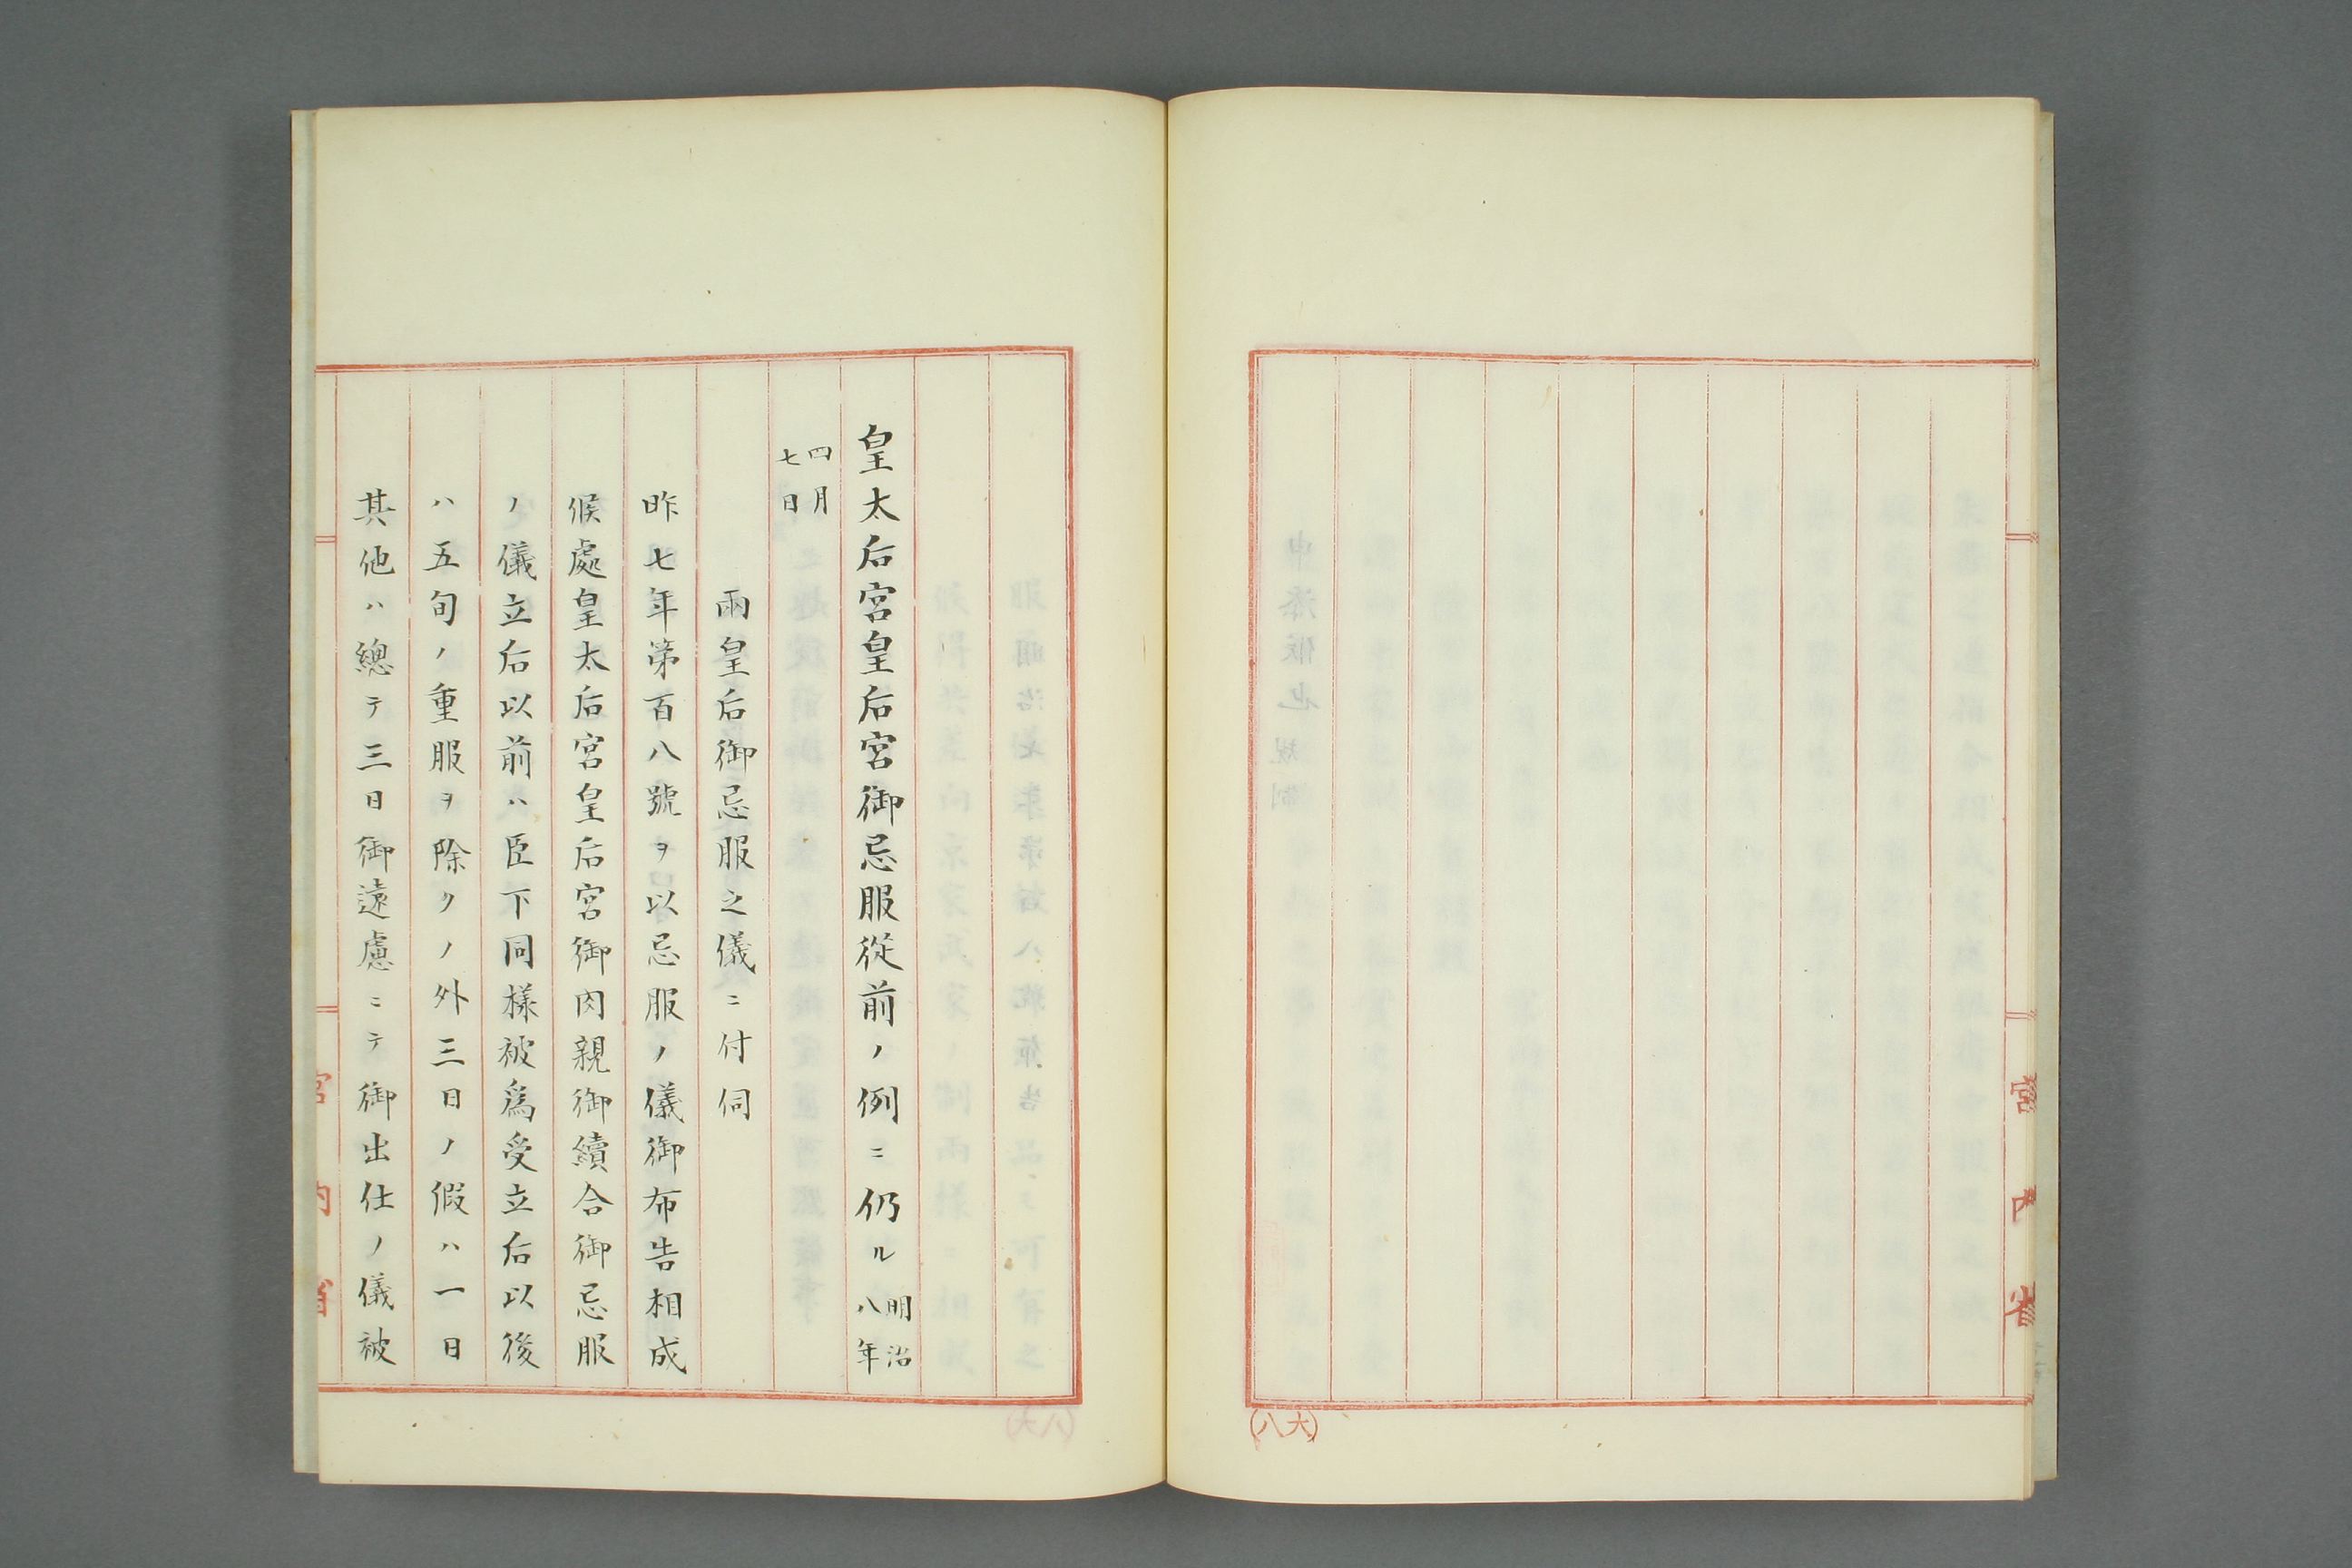 宮內省
(八大)
皇太后宮皇后宮御忌服從前ノ例ニ仍ル明治八年
四月七日
兩皇后御忌服之儀ニ付伺
昨七年第百八號ヲ以忌服ノ儀御布告相成
候處皇太后宮皇后宮御肉親御續合御忌服
ノ儀立后以前ハ臣下同樣被爲受立后以後
ハ五旬ノ重服ヲ除クノ外三日ノ假ハ一日
其他ハ總テ三日御遠慮ニテ御出仕ノ儀被
宮內省